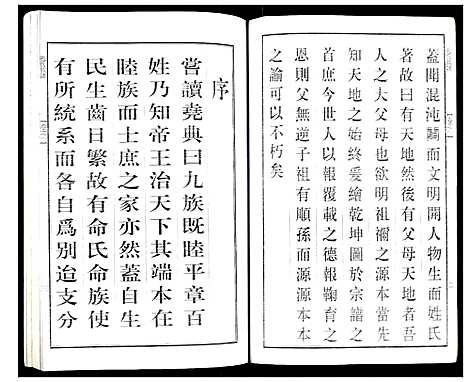 蓋聞混沌闢而文明開人物生而姓氏
著故曰有天地然後有父母天地者吾
人之大父母也欲明祖禰之源本當先
知天地之始終爰繪乾坤圖於宗譜之
首庶今世人以報覆載之德報鞠育之
恩則父無逆子祖有順孫而源源本本
之論可以不朽矣
序
嘗讀堯典曰九族既睦平章百
姓乃知帝王治天下其端本在
睦族而士庶之家亦然蓋自生
民生齒日繁故有命氏命族使
有所統系而各自爲別迨支分